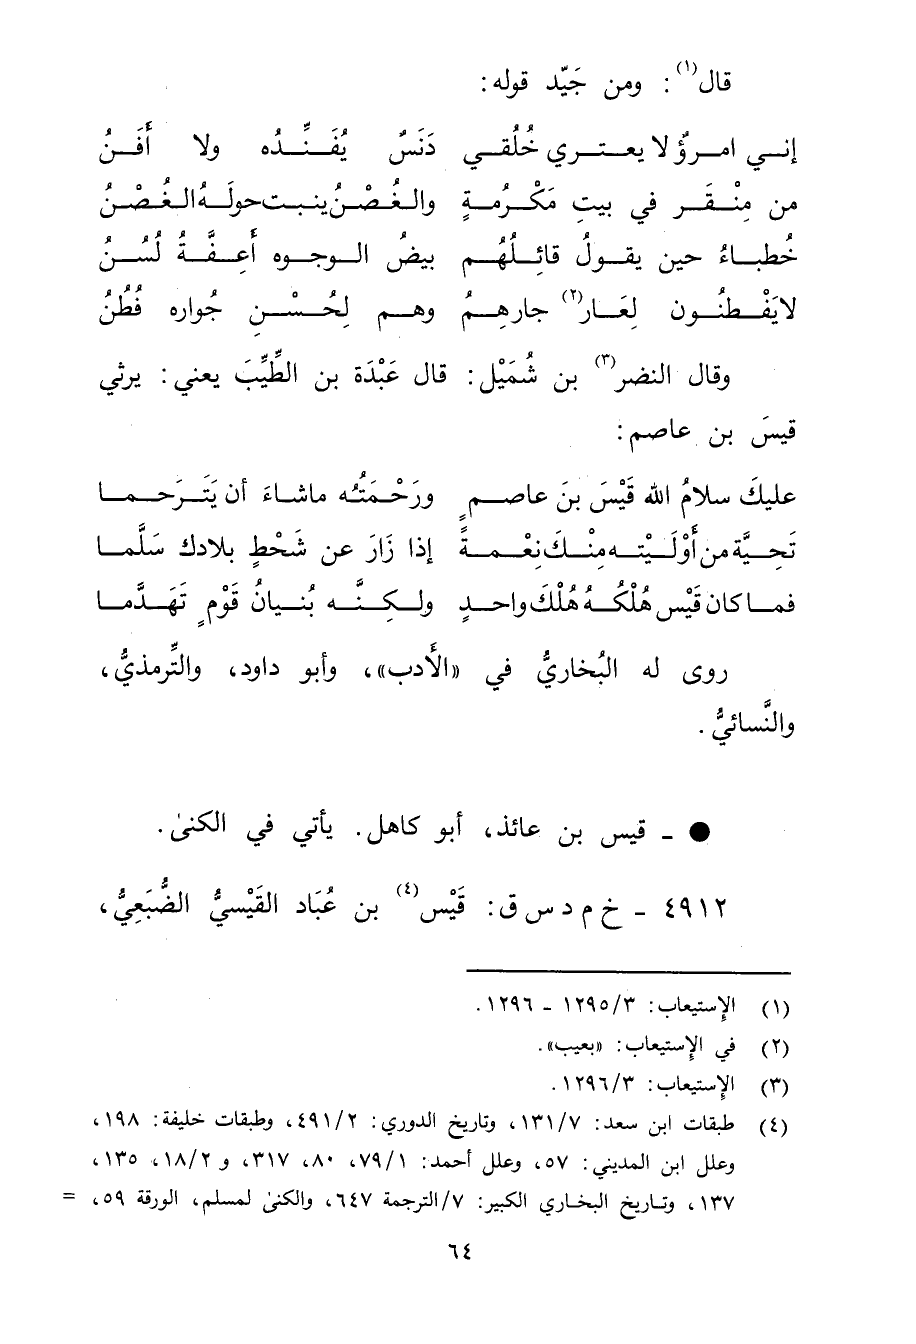 قال(١): ومن جَيّد قوله:
إنـي امـرؤٌ لا يعـتـري خُلُقـي دَنَسٌ يُفَـنِّـده ولا أَفَـنُ
من مِنْـقَـر في بيتِ مَكْـرُمـةٍ والـغُـصْـنُ ينبـت حولَـهُ الـغُـصْـنُ
خُطبـاءُ حين يقـولُ قائـلُهُـم بيضُ الـوجـوه أَعِـفَّـةٌ لُسُـنُ
لا يَفْـطنُـون لِعَـار(٢) جارهِـمُ وهـم لِحُسْـنِ جُواره فُطُنُ
وقال النضر(٣) بن شُمَيْل: قال عَبْدَة بن الطِّيِّبَ يعني: يرثي
قيسَ بن عاصم:
عليكَ سلامُ الله قَيْسَ بنَ عاصـمٍ ورَحْـمَتُـه ماشـاءَ أن يَتَـرحـمـا
تَحِـيَّـة من أَوْلَـيْتِـه مِنْـكَ نِعْـمـةً إذا زَارَ عن شَحْطٍ بلادك سَلَّمـا
فمـا كان قَيْس هُلْكُـهُ هُلْكَ واحـدٍ ولـكِـنَّـه بُنـيانُ قَوْمٍ تَهَـدَّمـا
روى له البُخاريُّ في «الأَدب»، وأبو داود، والتِّرمذيُّ،
والنَّسائيُّ.
● ـ قيس بن عائذ، أبو كاهل. يأتي في الكنىٰ.
٤٩١٢ ـ خ م د س ق: قَيْس(٤) بن عُبَاد القَيْسيُّ الضُّبَعِيُّ،
(١) الإستيعاب: ٣/١٢٩٥ ـ ١٢٩٦.
(٢) في الإستيعاب: «بعيب».
(٣) الإستيعاب: ٣/١٢٩٦.
(٤) طبقات ابن سعد: ٧/١٣١، وتاريخ الدوري: ٢/٤٩١، وطبقات خليفة: ١٩٨،
وعلل ابن المديني: ٥٧، وعلل أحمد: ١/٧٩، ٨٠، ٣١٧، و ٢/١٨، ١٣٥،
١٣٧، وتـاريخ البخـاري الكبير: ٧/الترجمة ٦٤٧، والكنىٰ لمسلم، الورقة ٥٩، =
٦٤